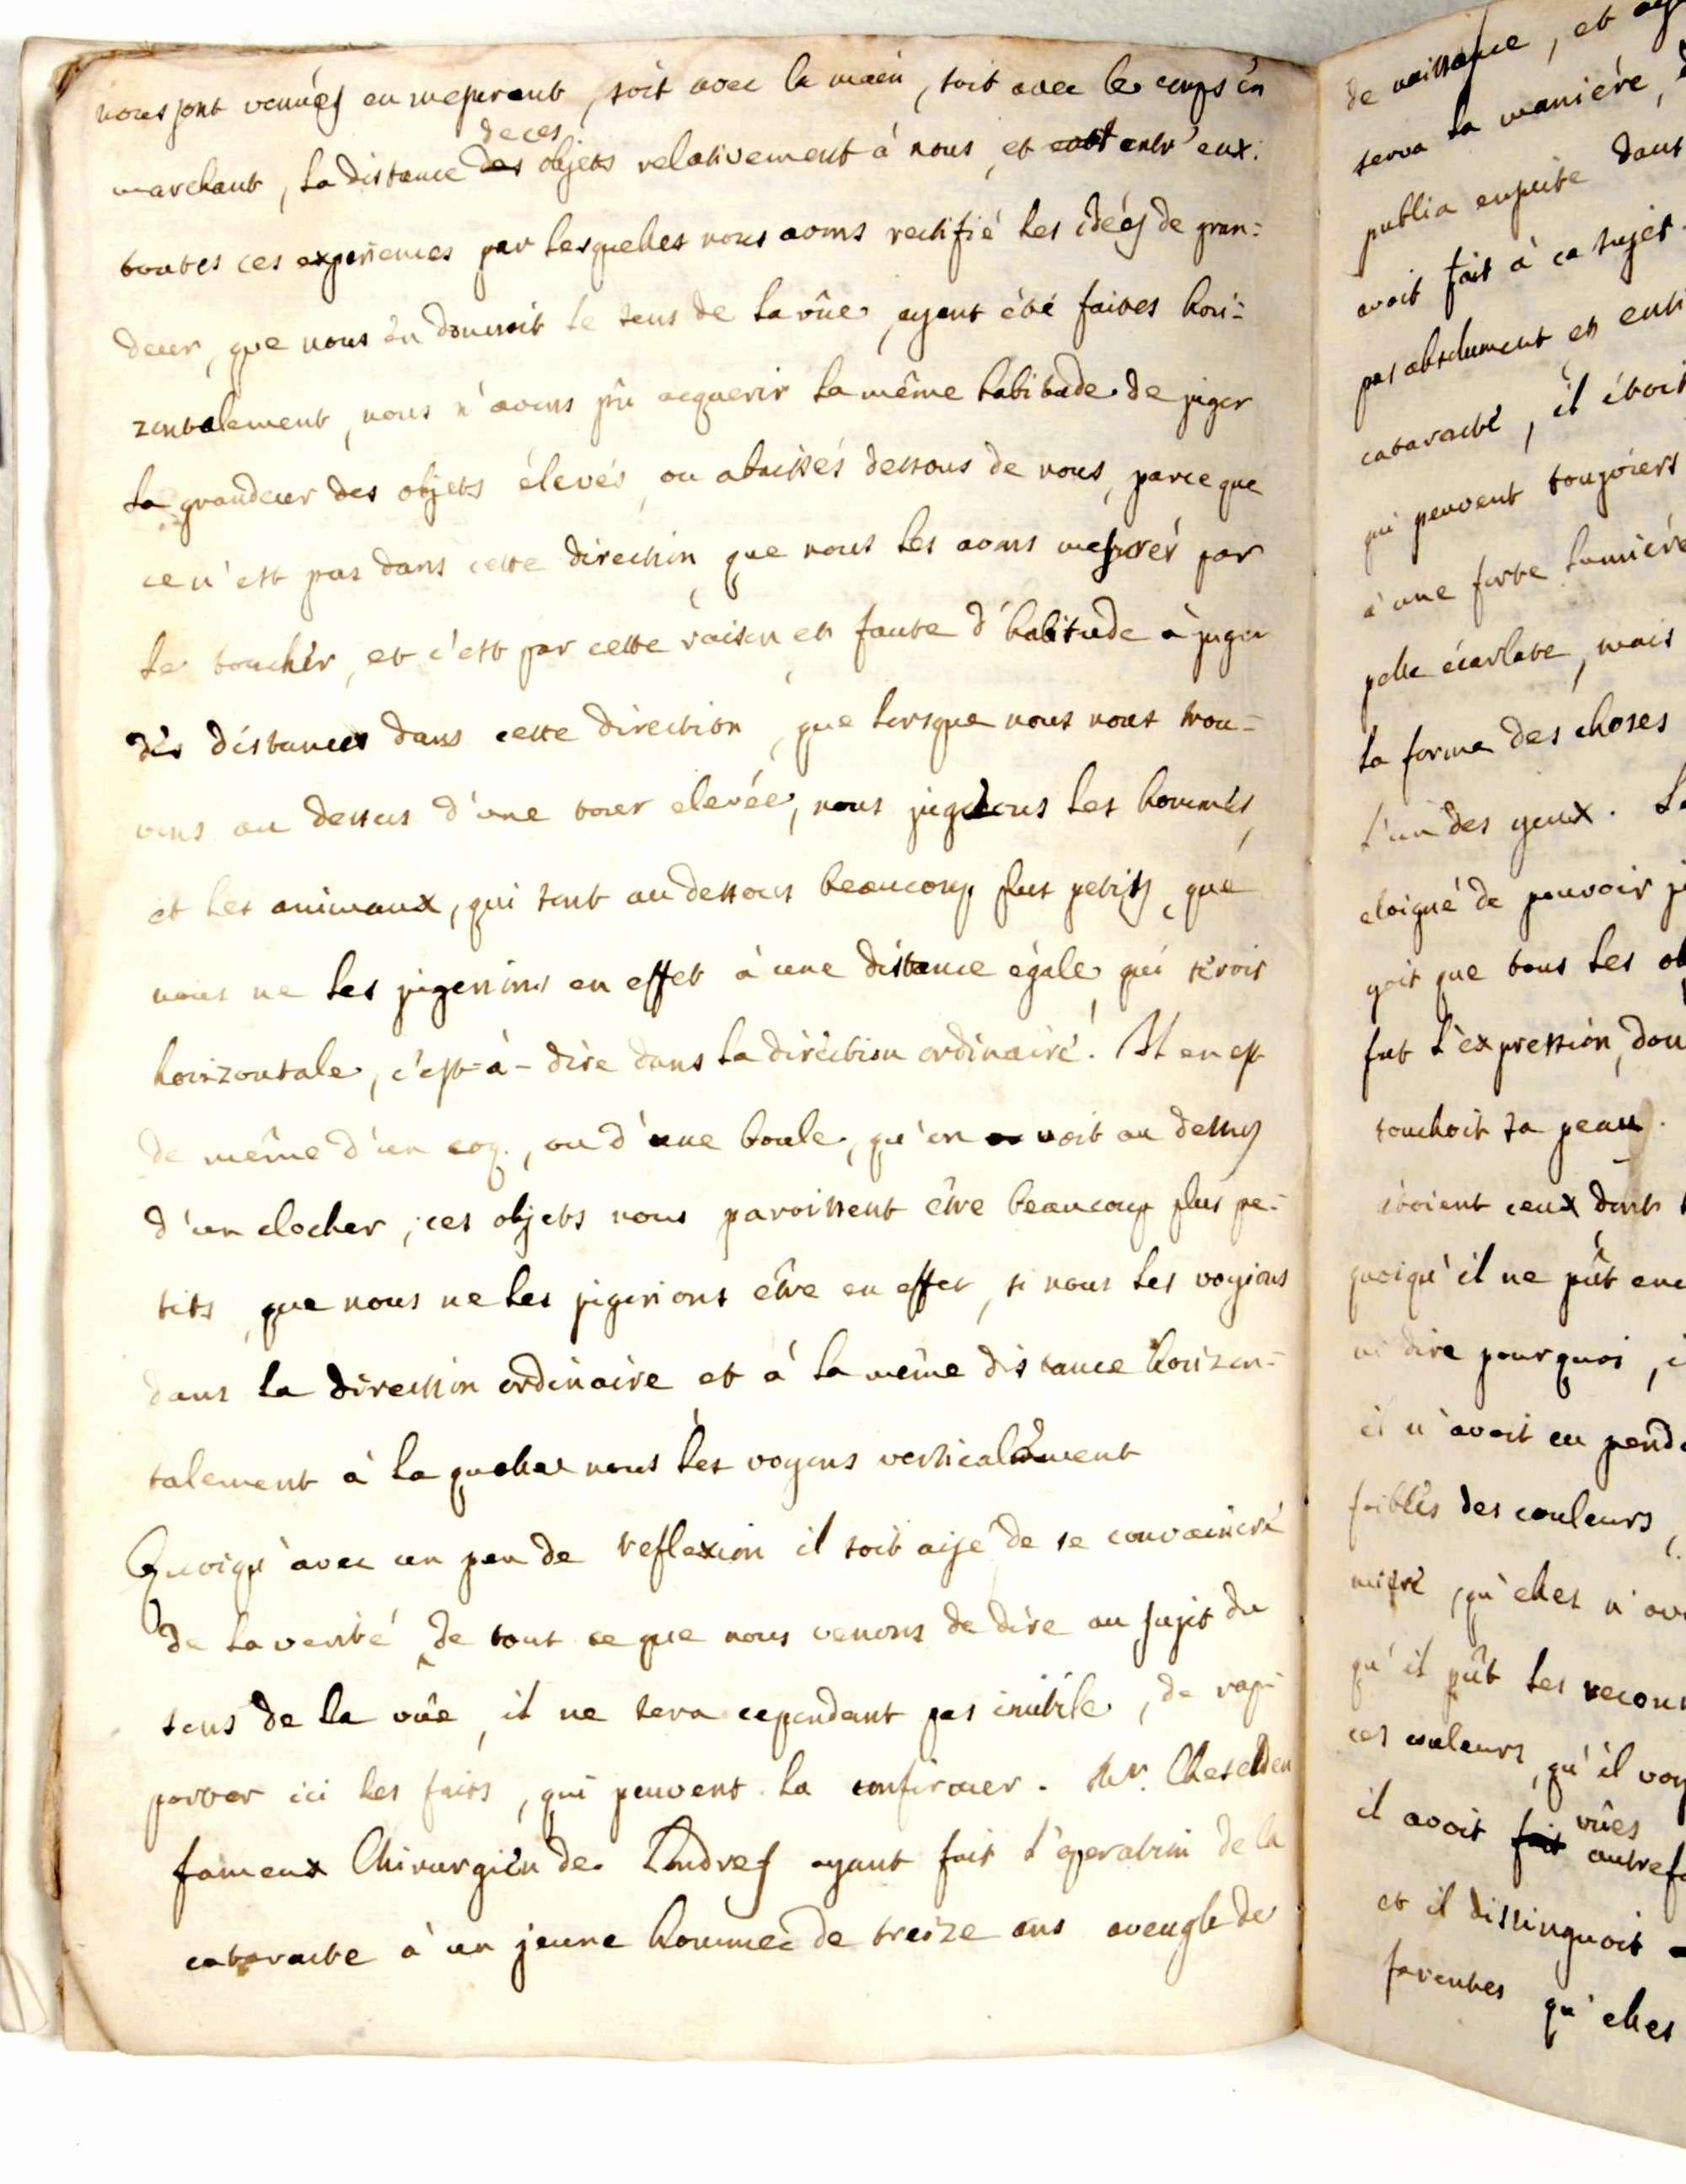 nous sont venuës en mesurant, soit avec la main, soit avec le corps en
de ces
marchant, la distance des objets relativement à nous, et entr'eux.
toutes ces experiences par lesquelles nous avons rectifié les idées de gran=
deur, que nous en donnoit le sens de la vûe, ayant été faites hori=
zontalement, nous n'avons pû acquerir la même habitude de juger
la grandeur des objets élevés, ou abaissés dessous de nous, parce que
ce n'est pas dans cette direction, que nous les avons mesurés par
le toucher, et c'est par cette raison et faute d'habitude à juger
des distances dans cette direction, que lorsque nous nous trou=
vons au dessus d'une tour elevée, nous jugeons les hommes,
et les animaux, qui sont au dessous beaucoup plus petits, que
nous ne les jugerions en effet à une distance égale qui seroit
horizontale, c'est=à-dire dans la direction ordinaire. Il en est
de même d'un coq, ou d'une boule, qu'on voit au dessus
d'un clocher; ces objets nous paroissent être beaucoup plus pe=
tits, que nous ne les jugerions être en effet, si nous les voyions
dans la direction ordinaire et à la même distance horizon=
talement à la quelle nous les voyons verticalement
Quoiqu'avec un peu de reflexion il soit aisé de se convaincre
de la verité de tout ce que nous venons de dire au sujet du
sens de la vûe, il ne sera cependant pas inutile, de rap=
porter ici les faits, qui peuvent la confirmer. Mr. Cheselden
fameux Chirurgien de Londres ayant fait l'operation de la
cataracte à un jeune homme de treize ans aveugle de
de naissance, et
serva la maniére,
publia ensuite dans
avoit fait à ce sujet.
pas absolument et enti
cataracte, il étoit
qui peuvent toujours
à une forte lumiére
pelle écarlate, mais
la forme des choses
l'un des yeux.
eloigné de pouvoir
que tous les
fut l'expression, don
touchoit sa peau.
étoient ceux dont
quoiqu'il ne pût enc
ni dire pourquoi,
il n'avoit eu penda
foibles des couleurs,
qu'elles n'av
qu'il pût les reconn
ces couleurs, qu'il voy
vûes
il avoit fait autrefo
et il distinguoit
ferentes qu'elles